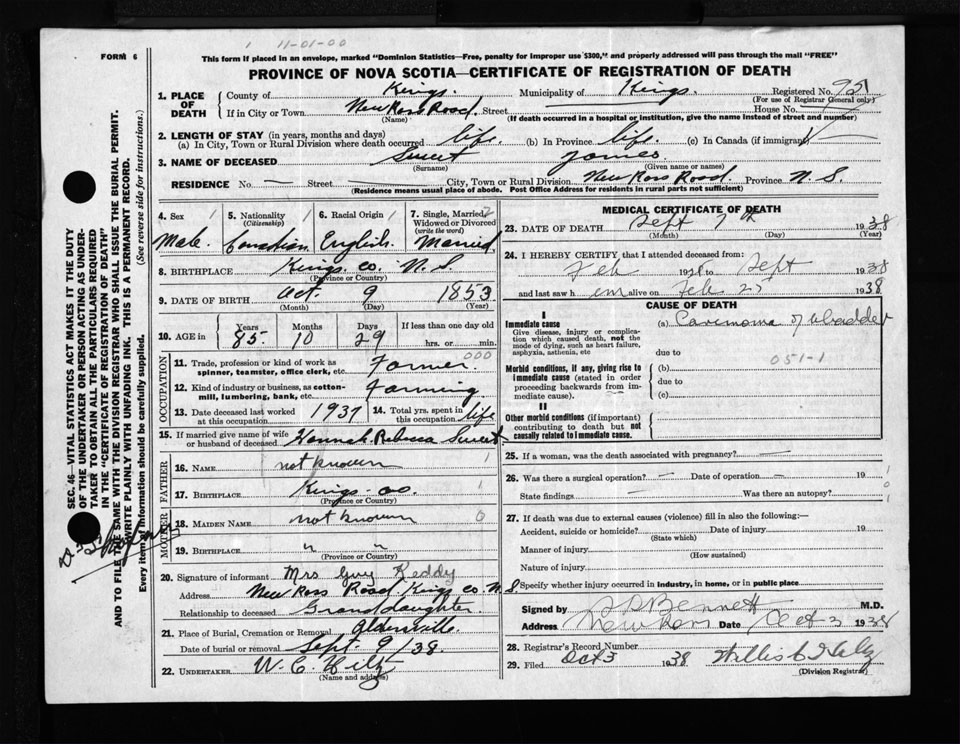 1 11-01-00
FORM 6
This form if placed in an envelope, marked "Dominion Statistics—Free, penalty for improper use $300," and properly addressed will pass through the mail "FREE"
PROVINCE OF NOVA SCOTIA—CERTIFICATE OF REGISTRATION OF DEATH
1. PLACE OF DEATH
County of Kings. Municipality of Kings. Registered No.
(For use of Registrar General only)
If in City or Town New Ross Road. Street House No.
(Name) (If death occurred in a hospital or institution, give the name instead of street and number)
2. LENGTH OF STAY (in years, months and days)
(a) In City, Town or Rural Division where death occurred life. (b) In Province life. (c) In Canada (if immigrant)
3. NAME OF DECEASED Sweet James.
(Surname) (Given name or names)
RESIDENCE No. — Street — City, Town or Rural Division New Ross Road. Province N. S.
(Residence means usual place of abode. Post Office Address for residents in rural parts not sufficient)
4. Sex 1 5. Nationality 1 (Citizenship) 6. Racial Origin 1 7. Single, Married, Widowed or Divorced (write the word) 2
Male. Canadian English. Married.
8. BIRTHPLACE Kings. co. N. S.
(Province or Country)
9. DATE OF BIRTH Oct. 9 1853
(Month) (Day) (Year)
10. AGE in Years Months Days If less than one day
85. 10 29 hrs. or min.
OCCUPATION
11. Trade, profession or kind of work as spinner, teamster, office clerk, etc. Farmer. 000
12. Kind of industry or business, as cotton-mill, lumbering, bank, etc. Farming
13. Date deceased last worked at this occupation 1937 14. Total yrs. spent in this occupation life
15. If married give name of wife or husband of deceased Hannah. Rebecca Sweet
FATHER
16. NAME not known 1
17. BIRTHPLACE Kings - co. 1
(Province or Country)
MOTHER
18. MAIDEN NAME not known 0
19. BIRTHPLACE " "
(Province or Country)
20. Signature of informant Mrs Guy Keddy
Address New Ross Road Kings co. N. S
Relationship to deceased Granddaughter.
21. Place of Burial, Cremation or Removal Aldersville.
Date of burial or removal Sept. 9/38.
22. UNDERTAKER W. C. Hiltz
(Name and address)
MEDICAL CERTIFICATE OF DEATH
23. DATE OF DEATH Sept 7th 1938
(Month) (Day) (Year)
24. I HEREBY CERTIFY that I attended deceased from:
Feb 1938 to Sept 1938
and last saw h im alive on Feb 25 1938
CAUSE OF DEATH
I
Immediate cause (a) Carcinoma of bladder
Give disease, injury or complication which caused death, not the mode of dying, such as heart failure, asphyxia, asthenia, etc
due to 051-1
Morbid conditions, if any, giving rise to immediate cause (stated in order proceeding backwards from immediate cause).
(b)
due to
(c)
II
Other morbid conditions (if important) contributing to death but not causally related to immediate cause.
25. If a woman, was the death associated with pregnancy? —
26. Was there a surgical operation? — Date of operation — 19
State findings — Was there an autopsy?
27. If death was due to external causes (violence) fill in also the following:—
Accident, suicide or homicide? Date of injury 19
(State which)
Manner of injury
(How sustained)
Nature of injury
Specify whether injury occurred in industry, in home, or in public place
Signed by Bennett M.D.
Address New Ross Date Oct 3 1938
28. Registrar's Record Number
29. Filed Oct 3 1938
(Division Registrar)
SEC. 46—VITAL STATISTICS ACT MAKES IT THE DUTY
OF THE UNDERTAKER OR PERSON ACTING AS UNDER-
TAKER TO OBTAIN ALL THE PARTICULARS REQUIRED
IN THE "CERTIFICATE OF REGISTRATION OF DEATH"
AND TO FILE THE SAME WITH THE DIVISION REGISTRAR WHO SHALL ISSUE THE BURIAL PERMIT.
WRITE PLAINLY WITH UNFADING INK. THIS IS A PERMANENT RECORD.
Every item of information should be carefully supplied. (See reverse side for instructions.)